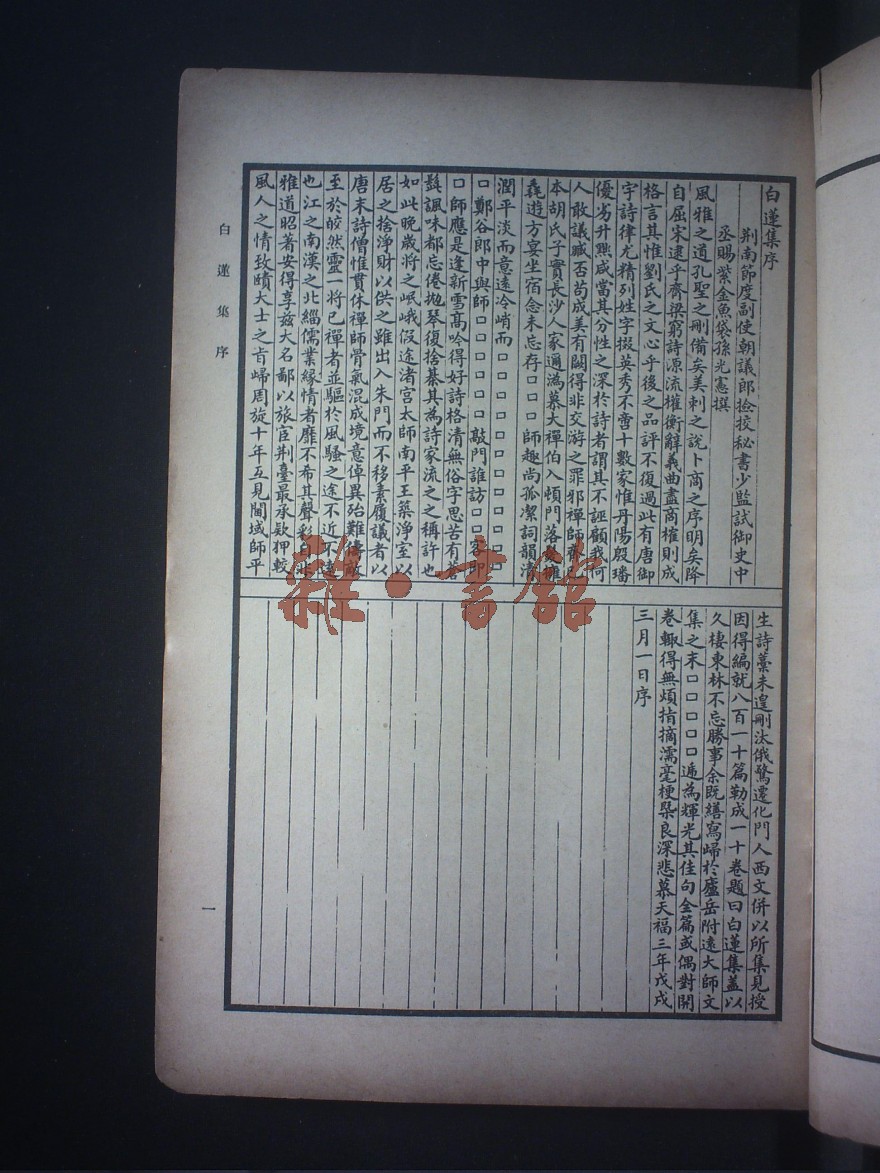 白蓮集序
荆南節度副使朝議郎撿挍秘書少監試御史中
丞賜紫金魚袋孫光憲撰
風雅之道孔聖之刪備矣美刺之說卜商之序明矣降
自屈宋逮乎齊梁窮詩源流權衡辭義曲盡商榷則成
格言其惟劉氏之文心乎後之品評不復過此有唐御
宇詩律尤精列姓字掇英秀不啻十數家惟丹陽殷璠
優劣升黜咸當其分性之深於詩者謂其不誣顧我何
人敢議臧否苟成美有闕得非交游之罪邪禪師齊己
本胡氏子實長沙人家邇溈慕大禪伯入頓門落髮擁
毳遊方宴坐宿念未忘存□□□師趣尚孤潔詞韻清
潤平淡而意遠冷峭而□□□□□□□□□□□
□鄭谷郎中與師□□□□□□敲門誰訪□□客即
□師應是逢新雪高吟得好詩格清無俗字思苦有蒼
髭諷味都忘倦拋琴復捨棊其為詩家流之之稱許也
如此晚歲將之岷峨假途渚宫太師南平王築淨室以
居之捨淨財以供之雖出入朱門而不移素履議者以
唐末詩僧惟貫休禪師骨氣混成境意倬異殆難儔敵
至於皎然靈一將已禪者並驅於風騷之途不近不遠
也江之南漢之北緇儒業緣情者靡不希其聲彩自非
雅道昭著安得享兹大名鄙以旅宦荆臺最承欵狎較
風人之情致賾大士之㫖歸周旋十年互見閫域師平
生詩藁未遑刪汰俄驚遷化門人西文併以所集見授
因得編就八百一十篇勒成一十卷題曰白蓮集蓋以
久棲東林不忘勝事余既繕寫歸於廬岳附遠大師文
集之末□□□□□遞為輝光其佳句全篇或偶對開
卷輙得無煩指摘濡毫梗槩良深悲慕天福三年戊戌
三月一日序
白蓮集序
一
雜·書館